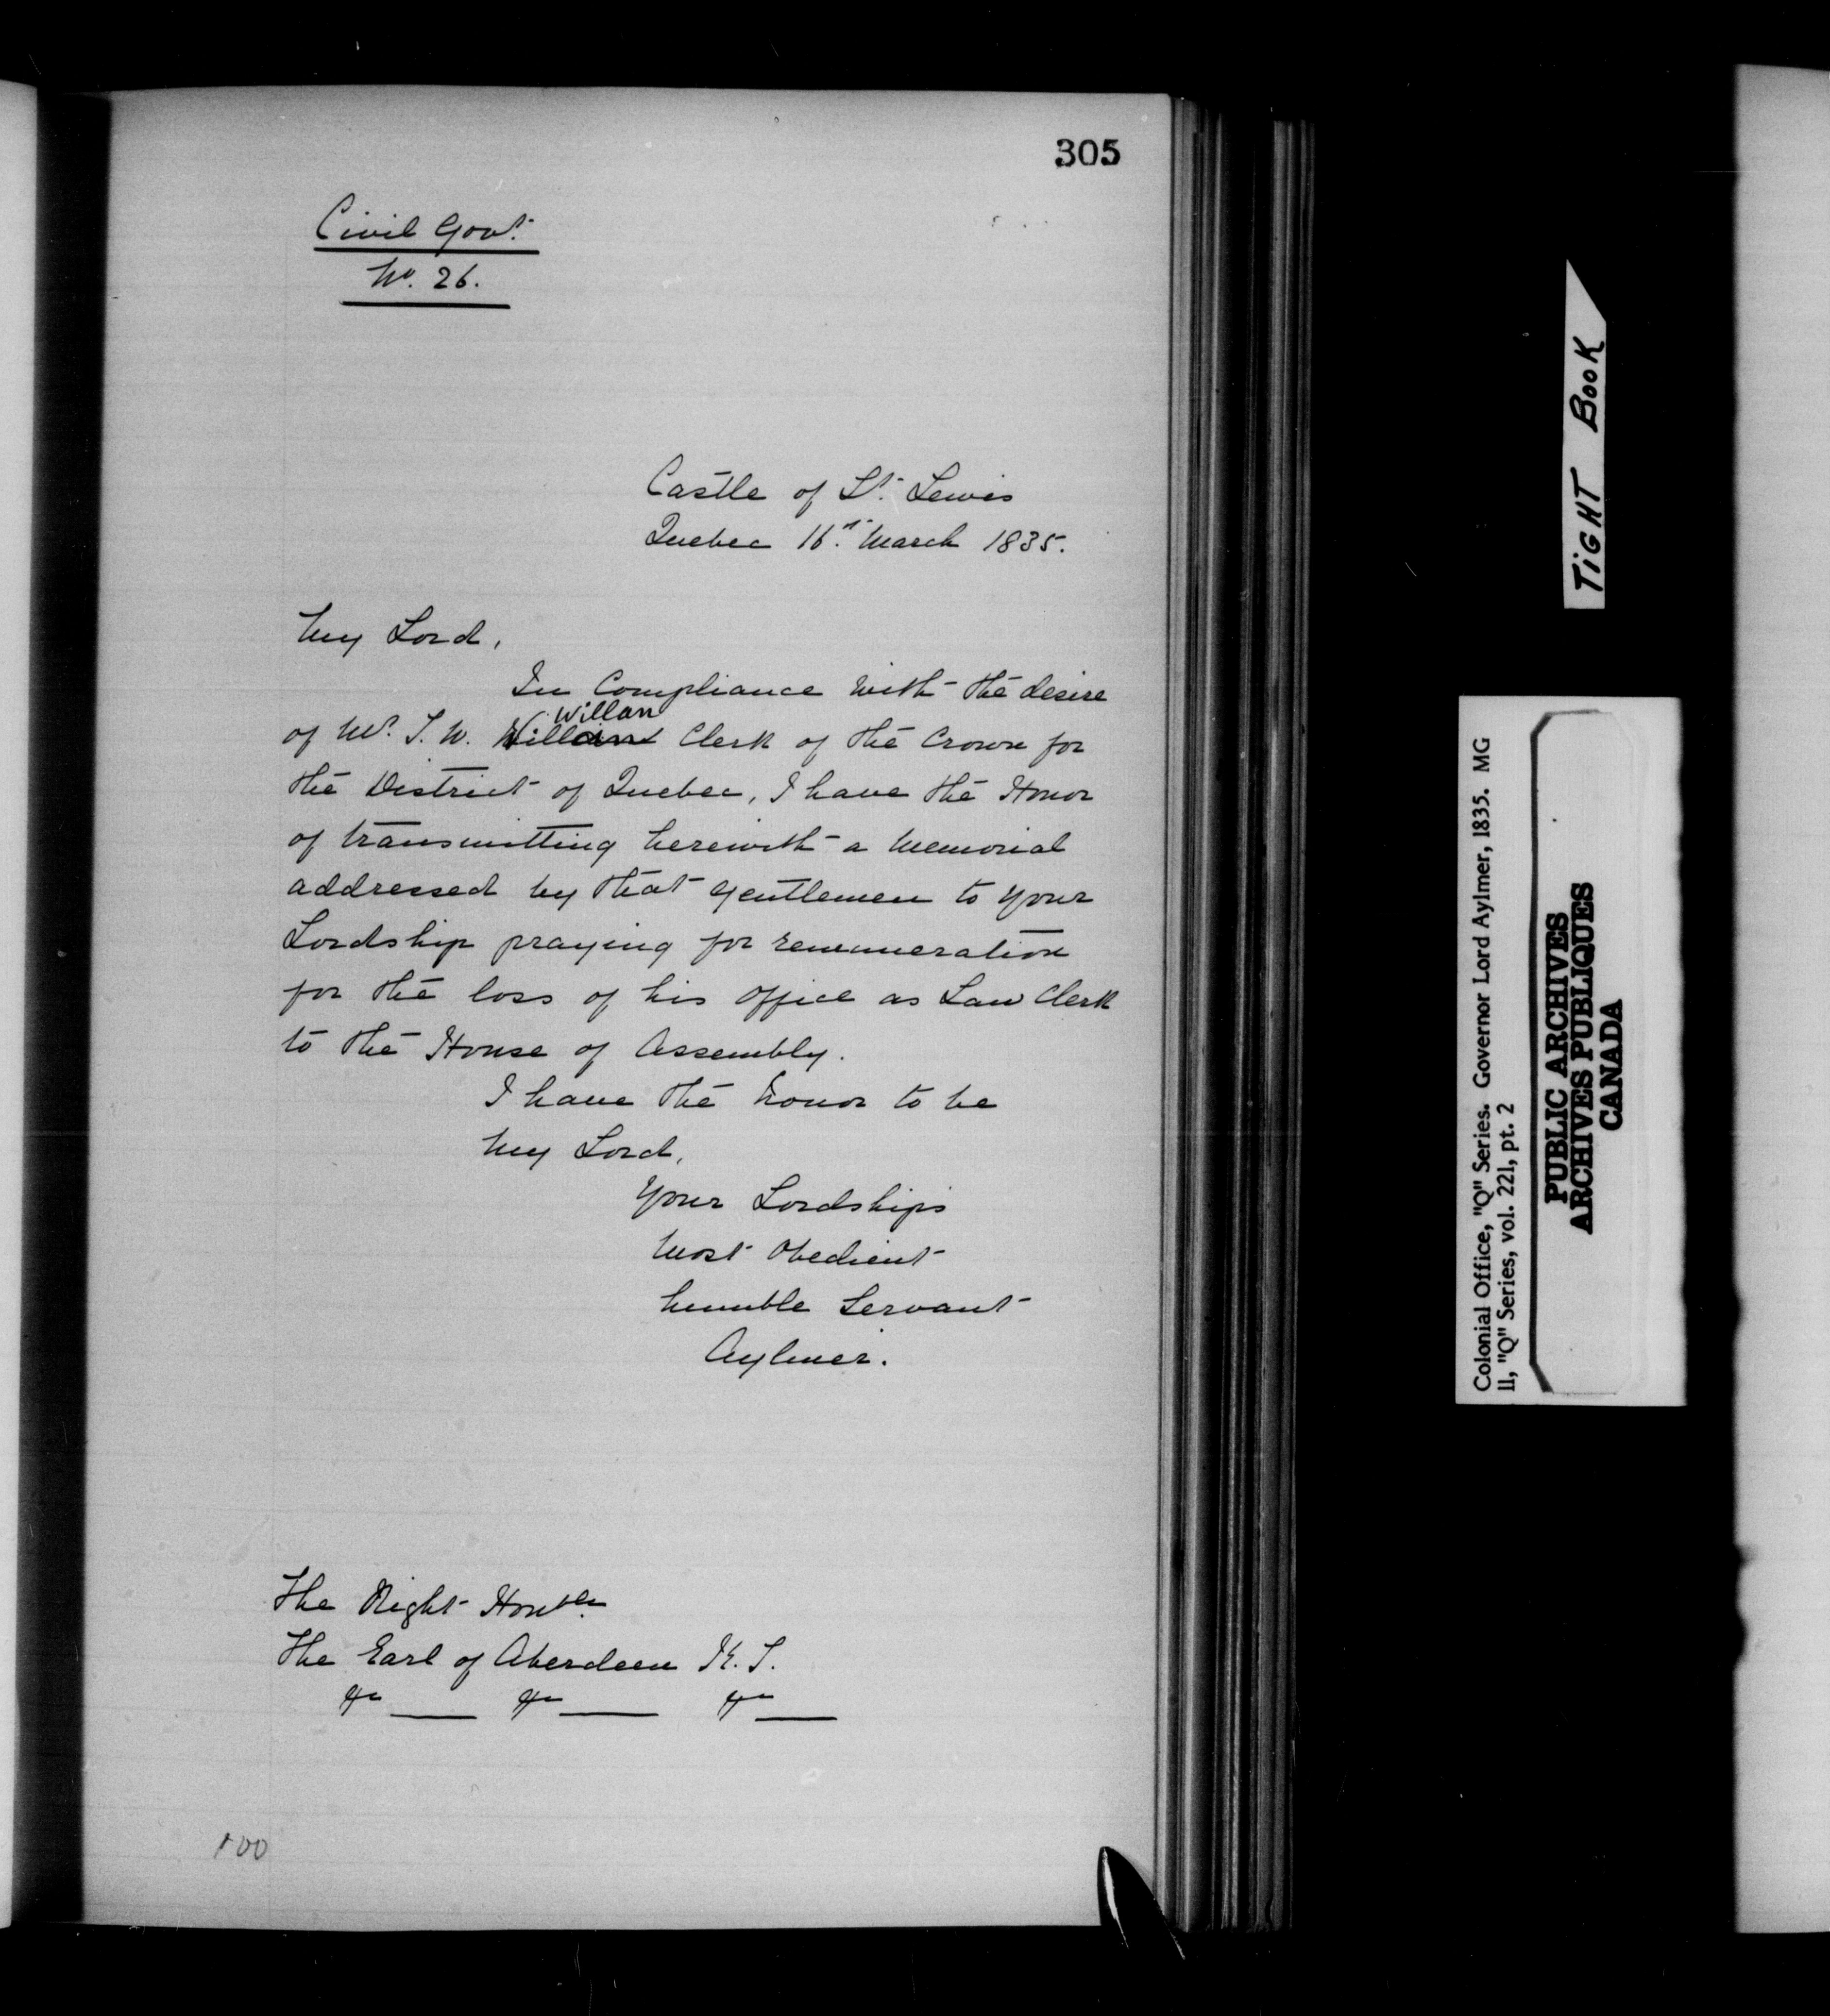 305
Civil Govt.
No. 26.
Castle of St. Lewis
Quebec 16th. March 1835.
My Lord,
In Compliance with the desire
Willan
of Mr. T. W. Willan Clerk of the Crown for
the District of Quebec, I have the Honor
of transmitting herewith a Memorial
addressed by that gentlemen to your
Lordship praying for remuneration
for the loss of his office as Law Clerk
to the House of Assembly.
I have the honor to be
My Lord,
Your Lordships
Most Obedient
humble Servant
Aylmer.
The Right Honble.
The Earl of Aberdeen K. T.
&c &c &c
100
TIGHT BOOK
Colonial Office, "Q" Series. Governor Lord Aylmer, 1835. MG
11, "Q" Series, vol. 221, pt. 2
PUBLIC ARCHIVES
ARCHIVES PUBLIQUES
CANADA